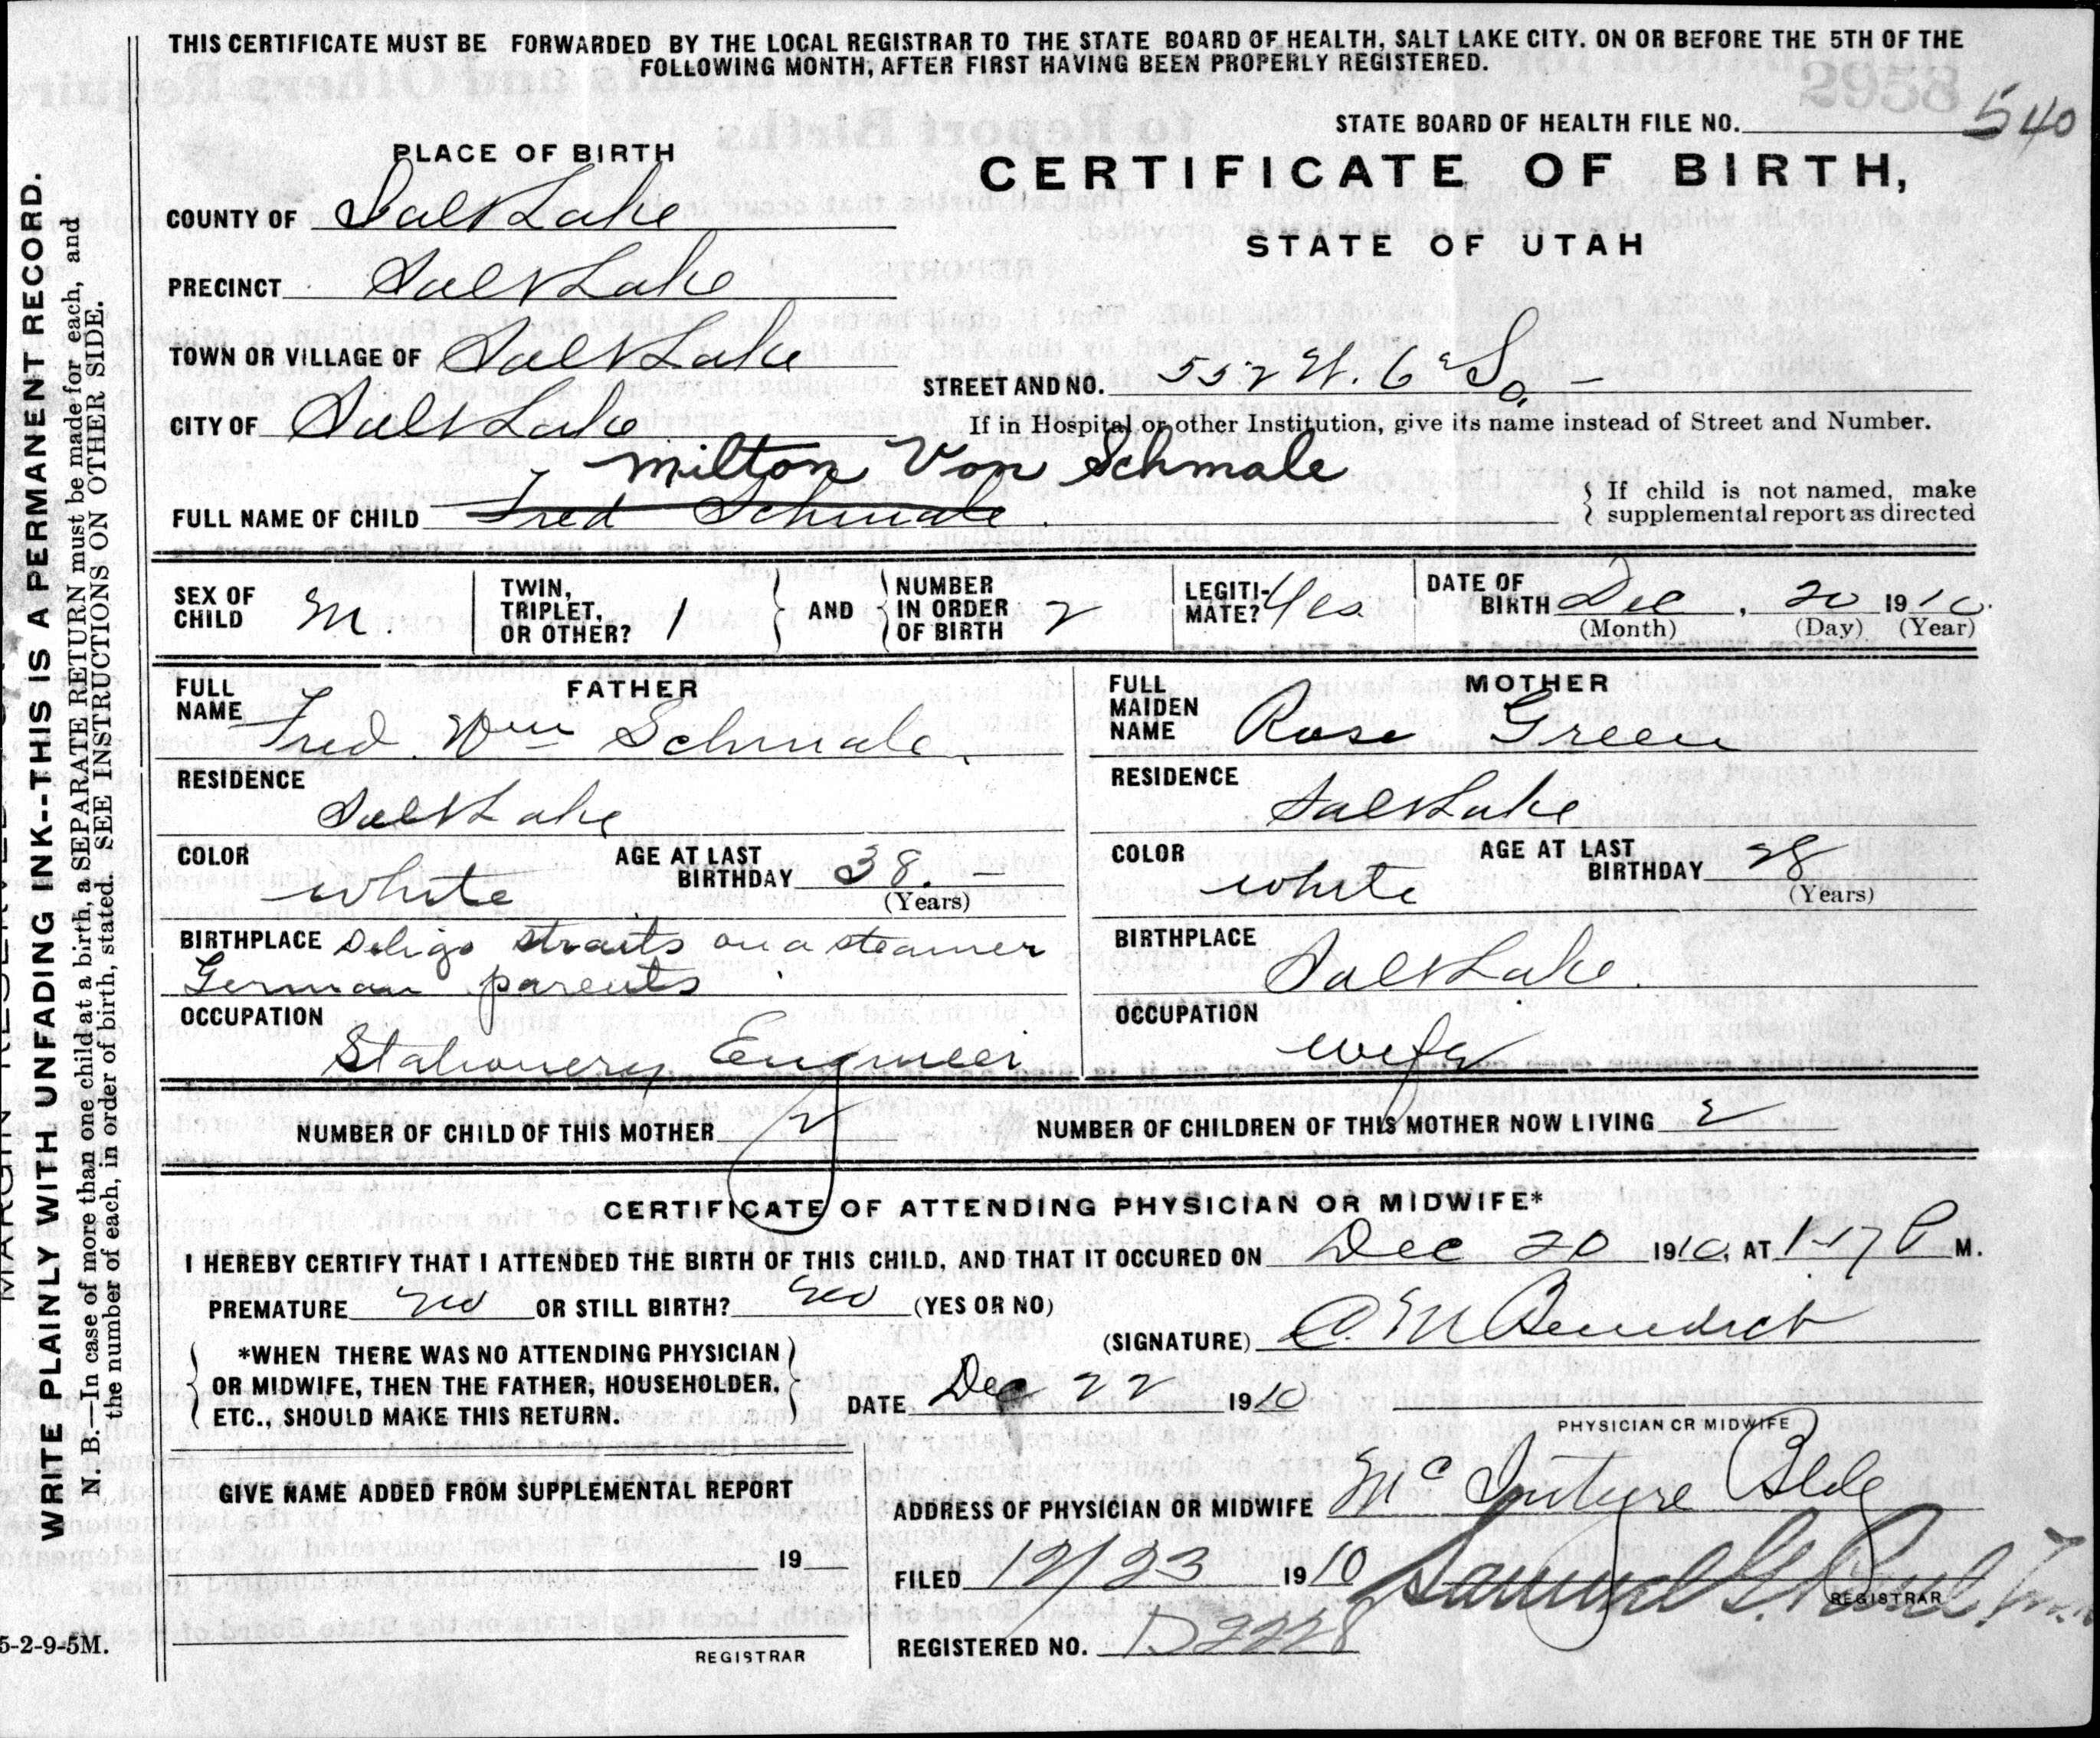 THIS CERTIFICATE MUST BE FORWARDED BY THE LOCAL REGISTRAR TO THE STATE BOARD OF HEALTH, SALT LAKE CITY. ON OR BEFORE THE 5TH OF THE
FOLLOWING MONTH, AFTER FIRST HAVING BEEN PROPERLY REGISTERED.
STATE BOARD OF HEALTH FILE NO. 540
PLACE OF BIRTH
CERTIFICATE OF BIRTH,
STATE OF UTAH
COUNTY OF Salt Lake
PRECINCT Salt Lake
TOWN OR VILLAGE OF Salt Lake
STREET AND NO. 552 W. 6 So.
CITY OF Salt Lake
If in Hospital or other Institution, give its name instead of Street and Number.
Milton Von Schmale
FULL NAME OF CHILD Fred Schmale
If child is not named, make
supplemental report as directed
SEX OF CHILD M. TWIN, TRIPLET, OR OTHER? 1 AND NUMBER IN ORDER OF BIRTH 2 LEGITI-MATE? Yes DATE OF BIRTH Dec, 20 1910.
(Month) (Day) (Year)
FATHER
FULL NAME Fred Wm Schmale
RESIDENCE
Salt Lake
COLOR white AGE AT LAST BIRTHDAY 38. -
(Years)
BIRTHPLACE straits on a steamer
German parents
OCCUPATION
Stationery Engineer
MOTHER
FULL MAIDEN NAME Rose Green
RESIDENCE
Salt Lake
COLOR white AGE AT LAST BIRTHDAY 28
(Years)
BIRTHPLACE
Salt Lake.
OCCUPATION
wife
NUMBER OF CHILD OF THIS MOTHER 2 NUMBER OF CHILDREN OF THIS MOTHER NOW LIVING 2
CERTIFICATE OF ATTENDING PHYSICIAN OR MIDWIFE*
I HEREBY CERTIFY THAT I ATTENDED THE BIRTH OF THIS CHILD, AND THAT IT OCCURED ON Dec 20 1910, AT 1-17 P M.
PREMATURE no OR STILL BIRTH? no (YES OR NO)
(SIGNATURE) C. M Benedict
*WHEN THERE WAS NO ATTENDING PHYSICIAN
OR MIDWIFE, THEN THE FATHER, HOUSEHOLDER,
ETC., SHOULD MAKE THIS RETURN.
DATE Dec 22 1910
PHYSICIAN OR MIDWIFE
GIVE NAME ADDED FROM SUPPLEMENTAL REPORT
19
REGISTRAR
ADDRESS OF PHYSICIAN OR MIDWIFE McIntyre Bldg
FILED 12/23 1910 Samuel G. Paul
REGISTRAR
REGISTERED NO. D2228
WRITE PLAINLY WITH UNFADING INK--THIS IS A PERMANENT RECORD.
N. B.—In case of more than one child at a birth, a SEPARATE RETURN must be made for each, and
the number of each, in order of birth, stated. SEE INSTRUCTIONS ON OTHER SIDE.
5-2-9-5M.